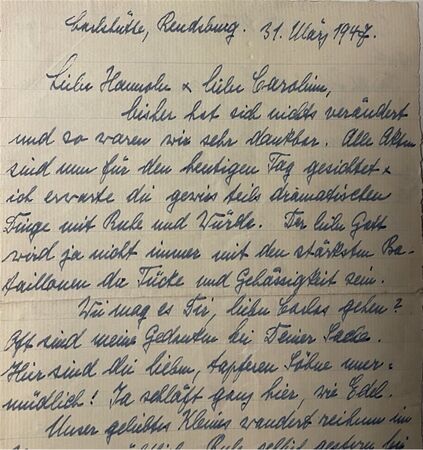 Carlshütte, Rendsburg. 31. März 1947.
Liebe Hannele x liebe Carolin,
bisher hat sich nichts verändert
und so waren wir sehr dankbar. Alle Akten
sind nun für den heutigen Tag gesichtet x
ich erwarte die gewiss teils dramatischen
Dinge mit Ruhe und Würde. Der liebe Gott
wird ja nicht immer mit den stärksten Ba-
taillonen der Tücke und Gehässigkeit sein.
Wie mag es Dir, lieber Carlos gehen?
Oft sind meine Gedanken bei Deiner Sache.
Hier sind die lieben, tapferen Söhne uner-
müdlich! Ja schläft ganz hier, wie Edel.
Unser geliebtes Kleines wandert reihum im
Ruhe selbst gestern bei